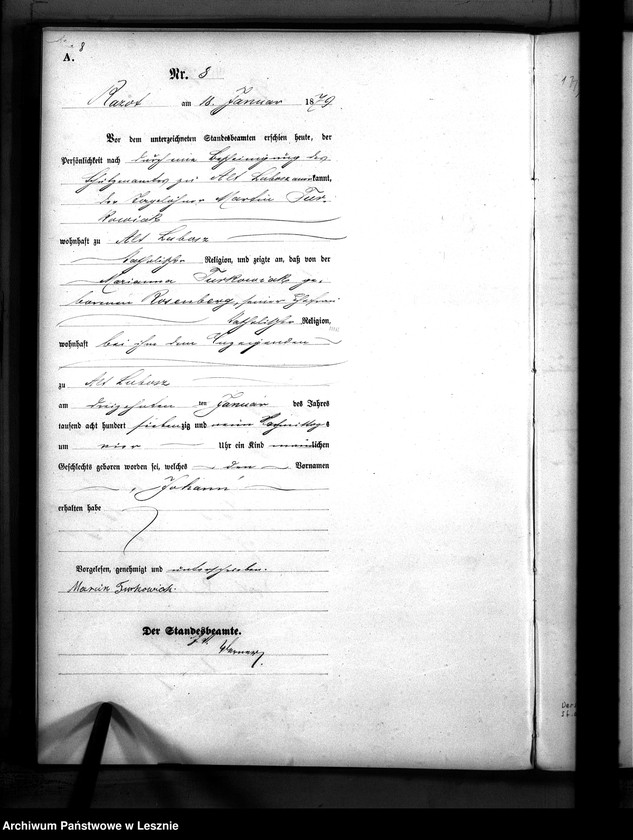 8
A.
Nr. 8
Razot am 18. Januar 1879
Vor dem unterzeichneten Standesbeamten erschien heute, der
Persönlichkeit nach durch eine Bescheinigung des
zu Alt Lubosz anerkannt,
der Tagelöhner Martin Tur-
kowiak
wohnhaft zu Alt Lubosz
katholischer Religion, und zeigte an, daß von der
Marianna Turkowiak ge-
borenen Rosenberg, seiner Ehefrau
katholischer Religion,
wohnhaft bei ihm dem Anzeigenden
zu Alt Lubosz
am dreizehnten ten Januar des Jahres
tausend acht hundert siebenzig und neun Nachmittags
um vier Uhr ein Kind männlichen
Geschlechts geboren worden sei, welches den Vornamen
Johann
erhalten habe
Vorgelesen, genehmigt und unterschrieben.
Marcin Turkowiak.
Der Standesbeamte.
Archiwum Państwowe w Lesznie